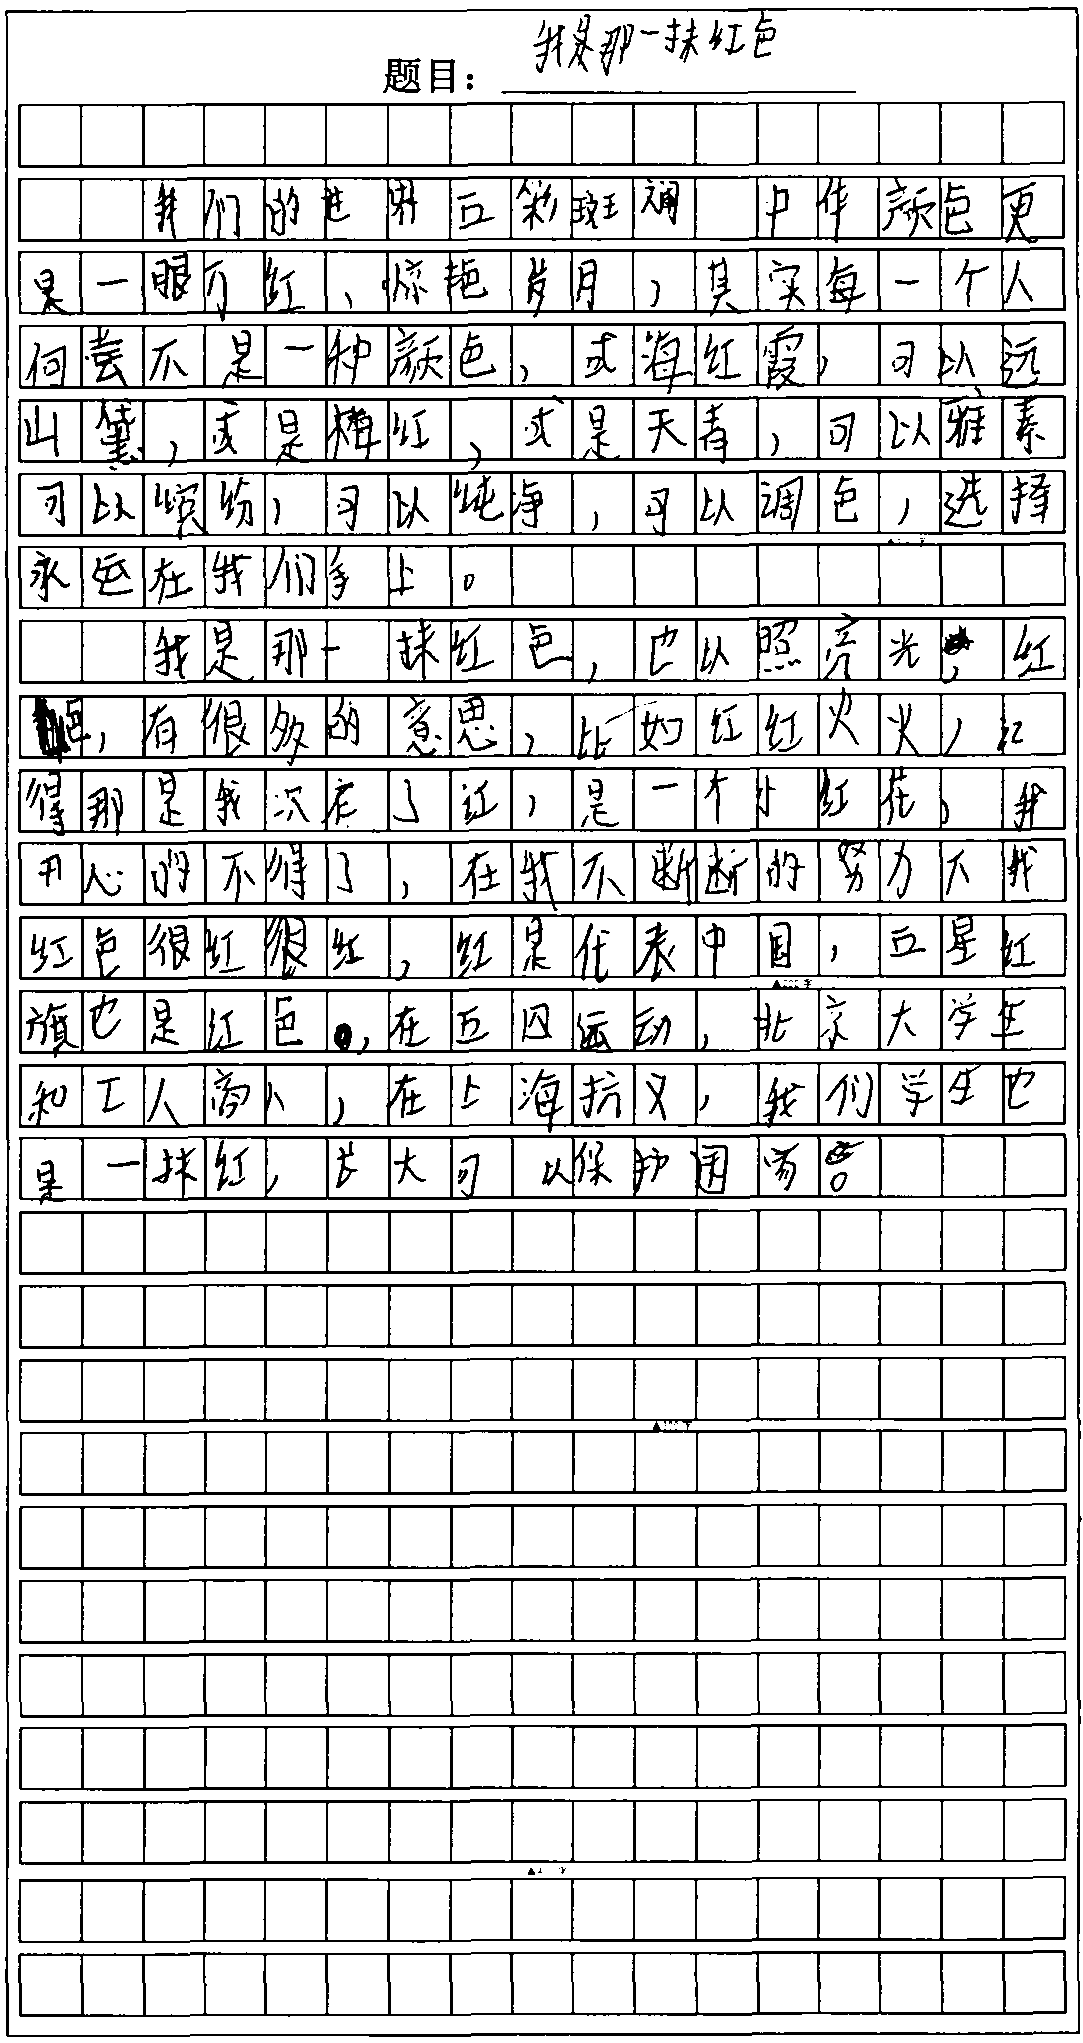 我是那一抹红色
题目：
我们的世界五彩斑斓 中华颜色更
是一眼万红，惊艳岁月，其实每一个人
何尝不是一种颜色，或海红霞，可以远
山黛，或是梅红，或是天青，可以雅素
可以缤纷，可以纯净，可以调色，选择
永远在我们手上。
我是那一抹红色，也以照亮光，红
色，有很多的意思，比如红红火火，记
得那是我次在了红，是一个小红花，我
开心的不得了，在我不断断的努力下我
红色很红很红，红是代表中国，五星红
旗也是红色，在五四运动，北京大学生
和工人商人，在上海抗义，我们学生也
是一抹红，长大可以保护国家。